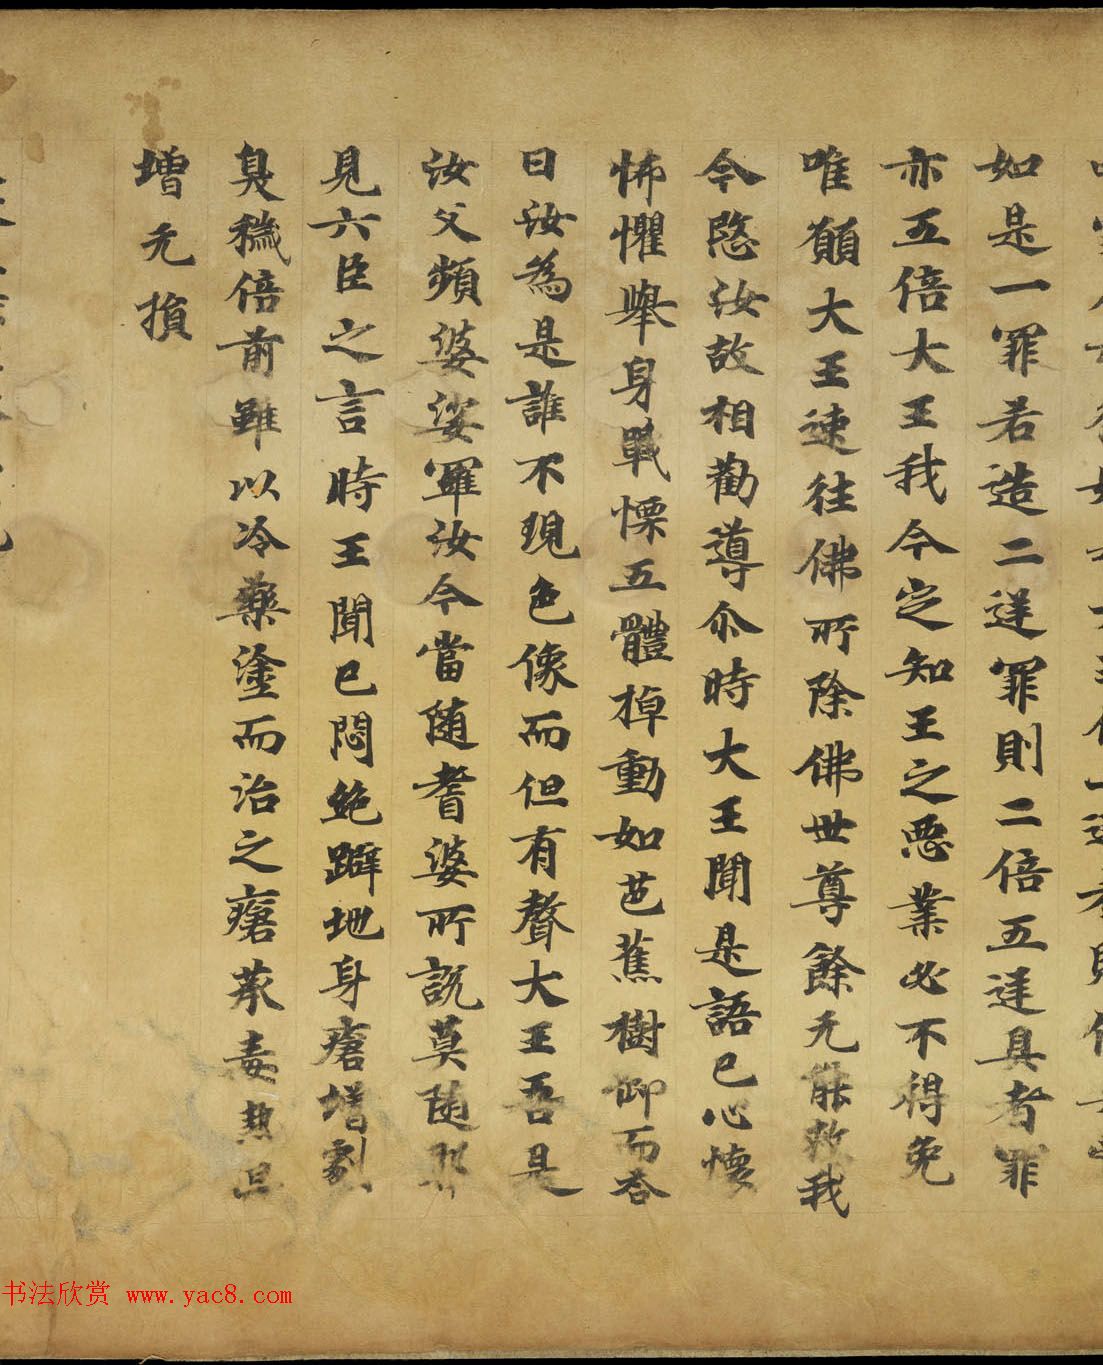 如是一罪若造二逆罪則二倍五逆具者罪
亦五倍大王我今定知王之惡業必不得免
唯願大王速往佛所除佛世尊餘无能救我
今愍汝故相勸導尒時大王聞是語已心懷
怖懼舉身戰慄五體掉動如芭蕉樹仰而答
曰汝為是誰不現色像而但有聲大王吾是
汝父頻婆娑羅汝今當随耆婆所説莫随邪
見六臣之言時王聞已悶絶躃地身瘡增劇
臭穢倍前雖以冷藥塗而治之瘡蒸毒熱但
增无損
书法欣赏 www.yac8.com